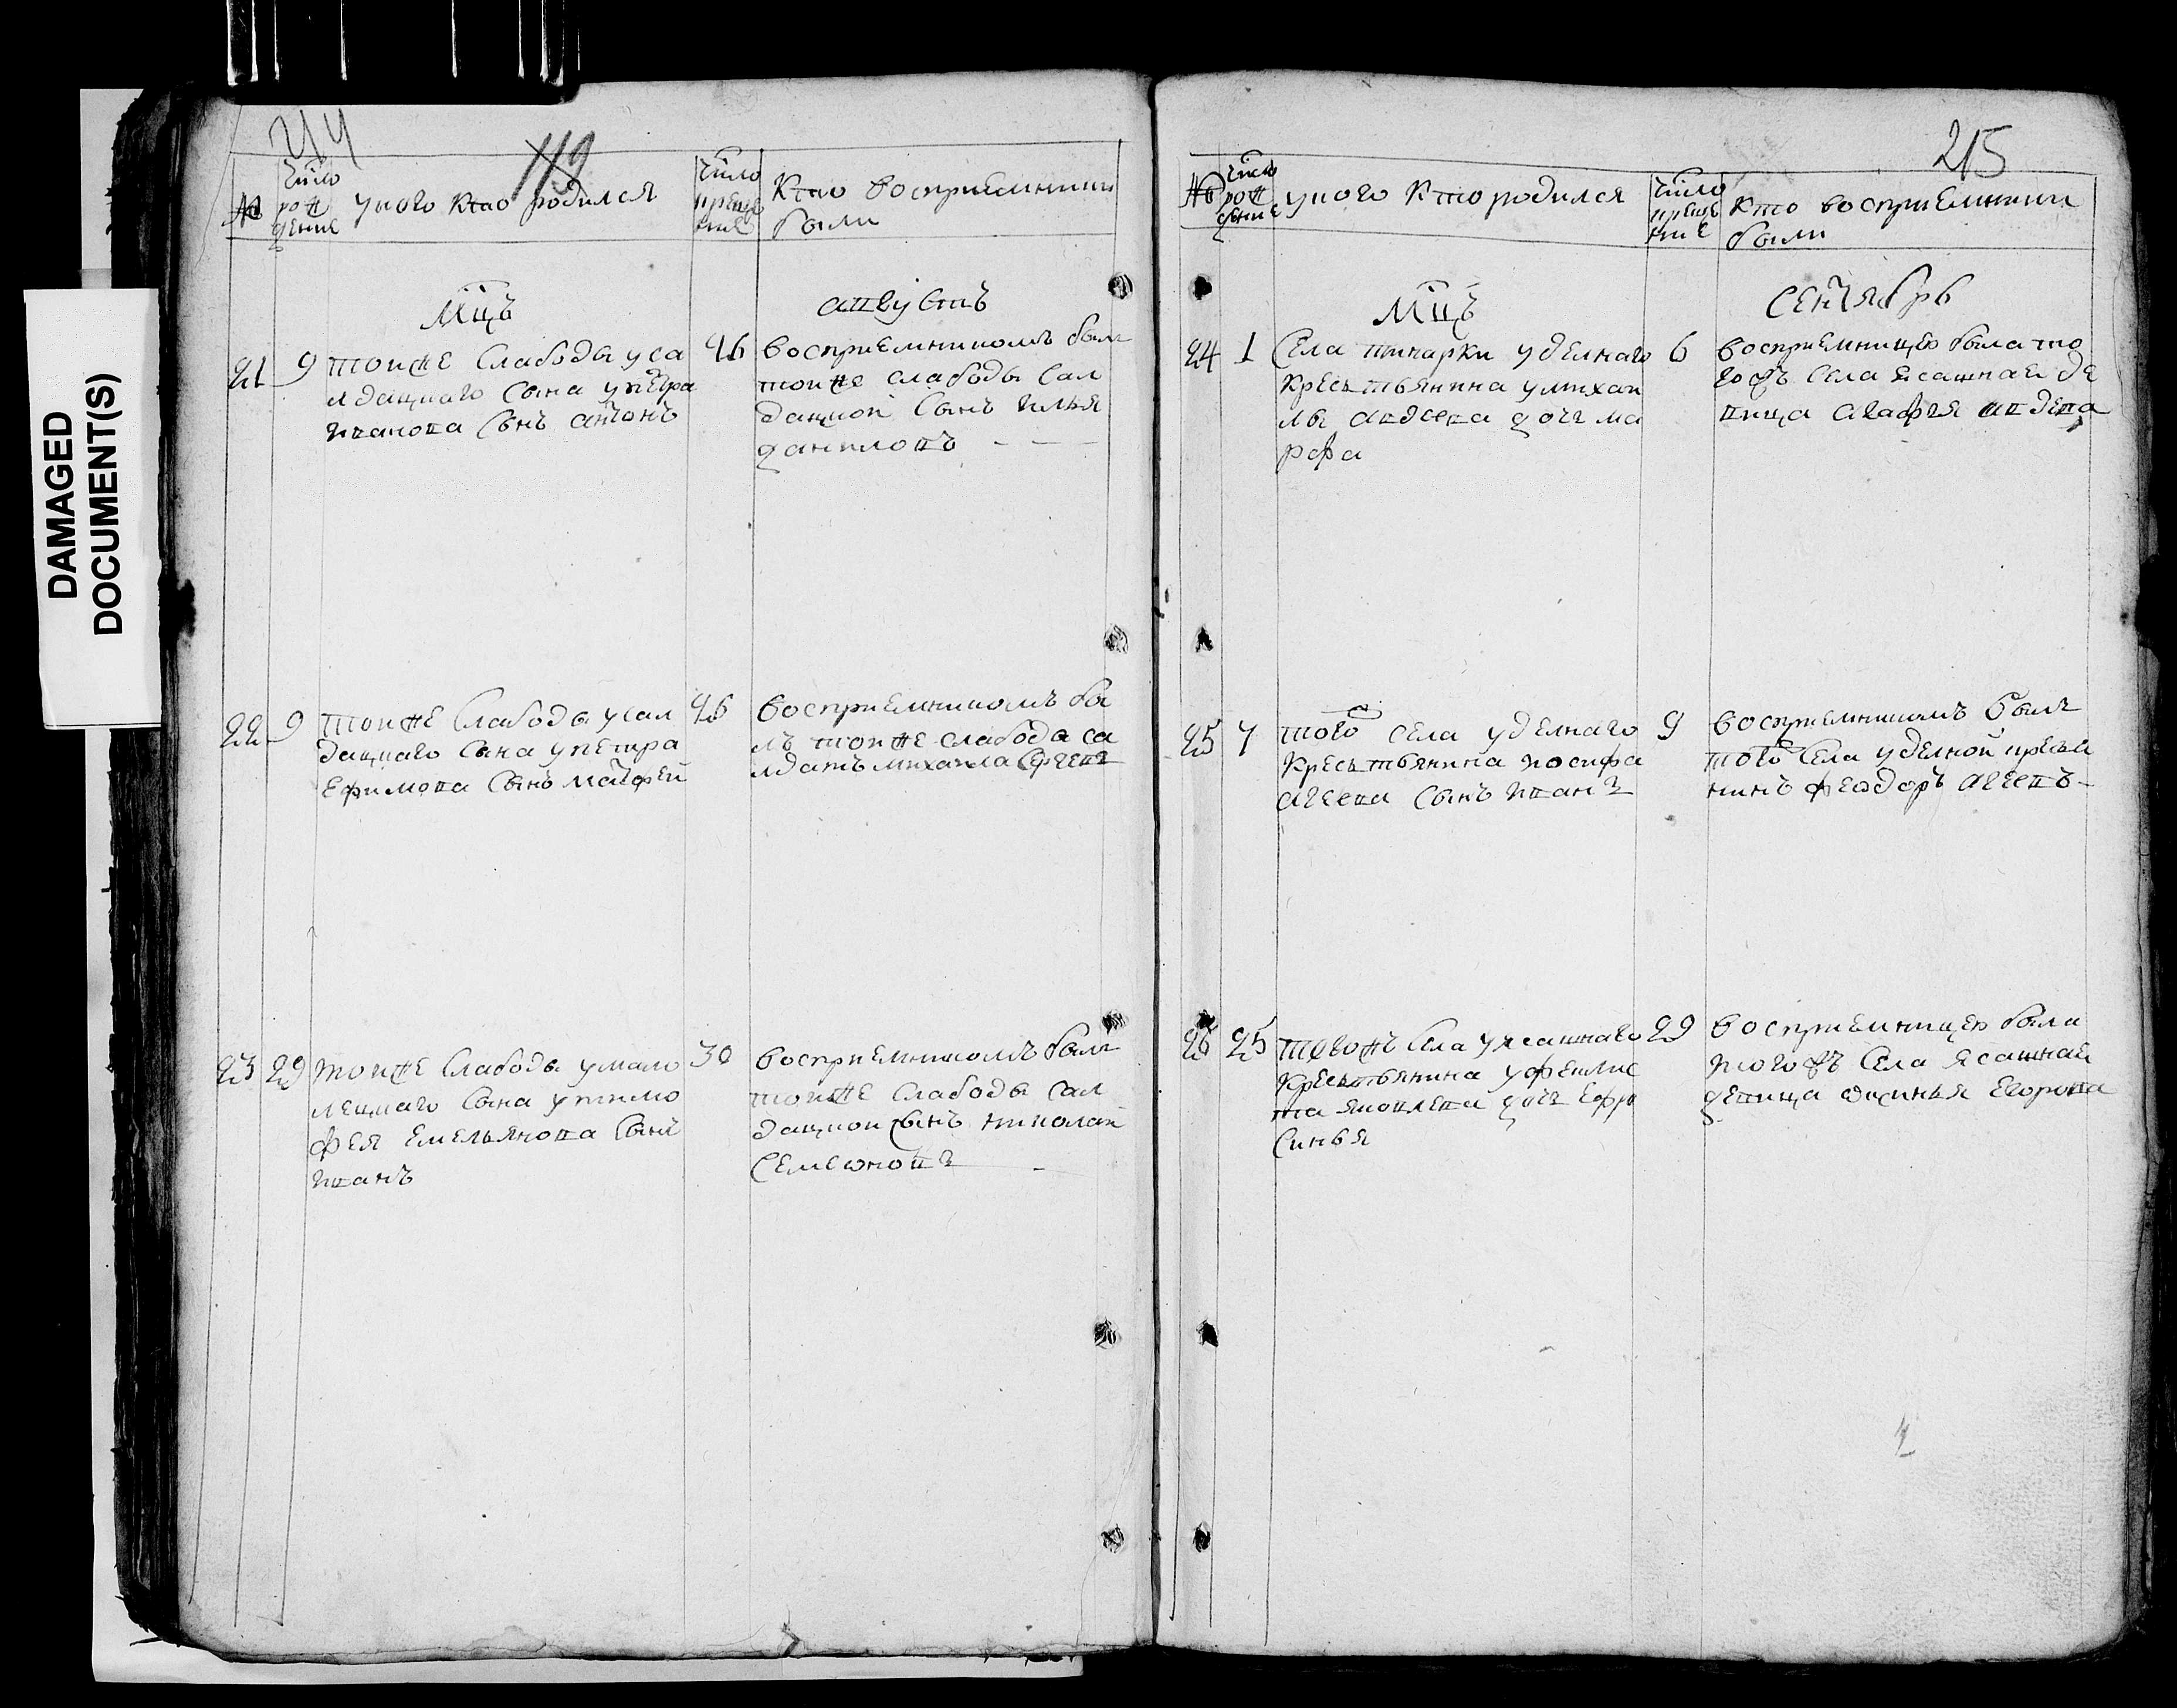 DAMAGED
DOCUMENT(S)
214
119
№
число рождение
у кого кто родился
число крещение
кто восприемники
были
мцъ
августъ
21
9
тойже слабоды у са
лдацкаго сына у петра
иванова сынъ антонъ
16
восприемникомъ былъ
тойже слабоды сал
дацкой сынъ илья
даниловъ
22
9
тойже слабоды у сал
дацкаго сына у петра
ефимова сынъ матфей
16
восприемникомъ бы
лъ тойже слабоды са
лдатъ михаила сергеевъ
23
29
тойже слабоды у мало
лецкаго сына у тимо
фея емельянова сынъ
иванъ
30
восприемникомъ былъ
тойже слабоды сал
дацкой сынъ николай
семеоновъ
215
№
число рождение
у кого кто родился
число крещение
кто восприемники
были
мцъ
сентябрь
24
1
села уделнаго
крестьянина у михаи
лы авдеева дочь ма
рфа
6
восприемницею была то
гожъ села ясашная де
вица агафия авдева
25
7
тогожъ села уделнаго
крестьянина иосифа
агеева сынъ иванъ
9
восприемникомъ былъ
тогожъ села уделной кресья
нинъ феодоръ агеевъ
26
25
тогожъ села у ясашнаго
крестьянина у феклис
та яковлева дочь ефро
синья
29
восприемницею была
тогожъ села ясашная
девица аксинья егорова